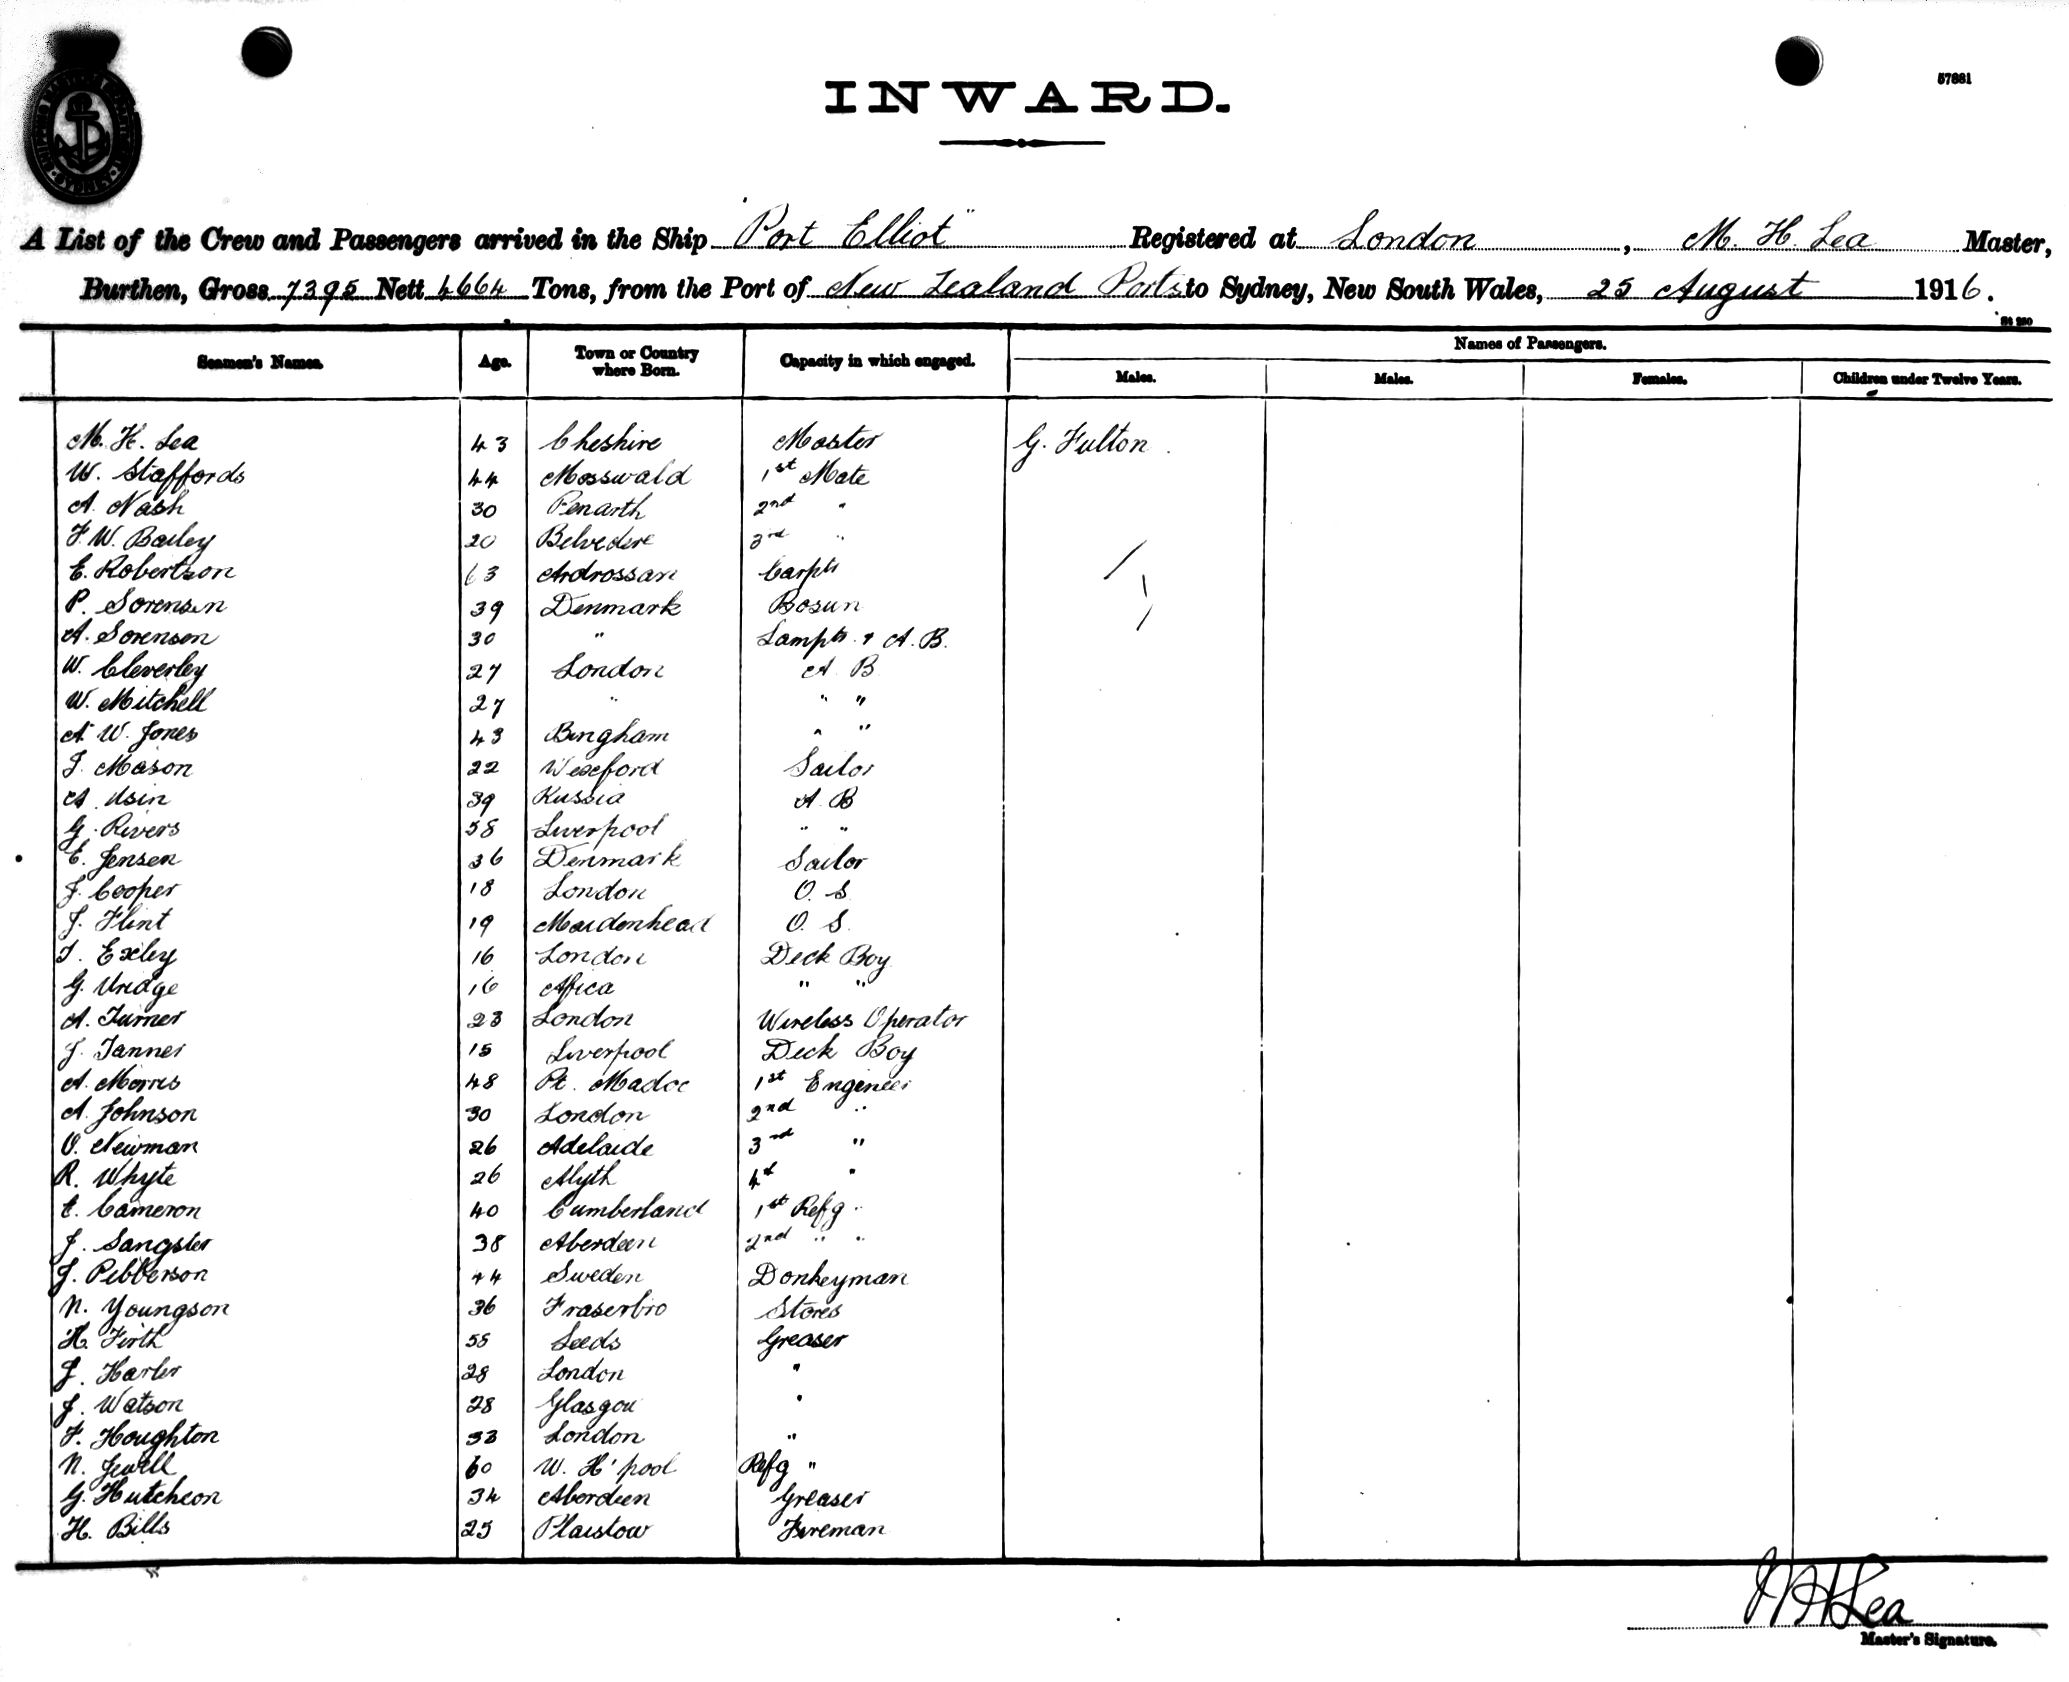 57881
INWARD.
A List of the Crew and Passengers arrived in the Ship "Port Elliot" Registered at London, M. H. Lea Master,
Burthen, Gross 7395 Nett 4664 Tons, from the Port of New Zealand Ports to Sydney, New South Wales, 25 August 1916.
Names of Passengers.
Seamen's Names. Age. Town or Country where Born. Capacity in which engaged. Males. Males. Females. Children under Twelve Years.
M. H. Lea 43 Cheshire Master G. Fulton
W. Staffords 44 Mosswald 1st Mate
A. Nash 30 Penarth 2nd "
F. W. Bailey 20 Belvedere 3rd "
E. Robertson 63 Ardrossan Carptr
P. Sorensen 39 Denmark Bosun
A. Sorenson 30 " Lamptr & A. B.
W. Cleverley 27 London A B
W. Mitchell 27 " " "
A. W. Jones 43 Bingham " "
J. Mason 22 Wexford Sailor
A. Usin 39 Russia A. B
G. Rivers 58 Liverpool " "
E. Jensen 36 Denmark Sailor
J. Cooper 18 London O. S.
J. Flint 19 Maidenhead O. S.
T. Exley 16 London Deck Boy
G. Uridge 16 Africa " "
A. Turner 23 London Wireless Operator
J. Tanner 15 Liverpool Deck Boy
A. Morris 48 Pt. Madoc 1st Engineer
A. Johnson 30 London 2nd "
O. Newman 26 Adelaide 3rd "
R. Whyte 26 Alyth 4th "
E. Cameron 40 Cumberland 1st Refg "
J. Sangster 38 Aberdeen 2nd " "
J. Petterson 44 Sweden Donkeyman
N. Youngson 36 Fraserbro Stores
H. Firth 55 Leeds Greaser
J. Harler 28 London "
J. Watson 28 Glasgow "
F. Houghton 33 London "
N. Jewell 60 W. H'pool Refg "
G. Hutcheon 34 Aberdeen Greaser
H. Bills 25 Plaistow Fireman
M H Lea
Master's Signature.